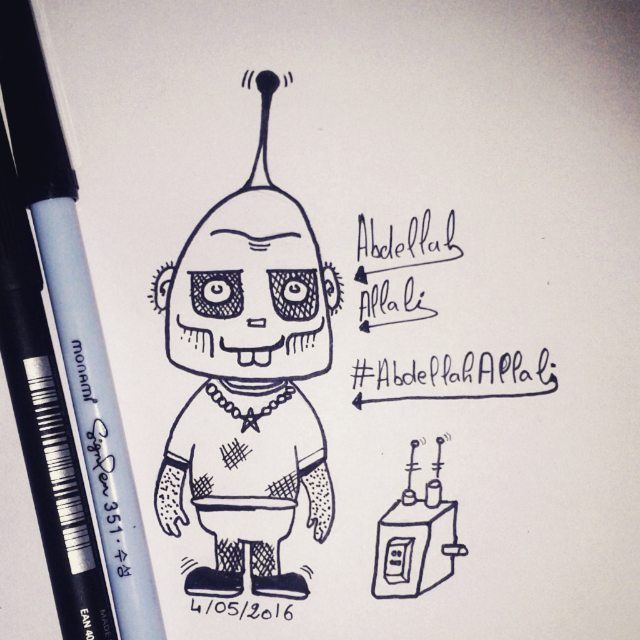 Abdellah
Allali
#AbdellahAllali
4/05/2016
monami SignPen 351. 수성
EAN 40
MADE